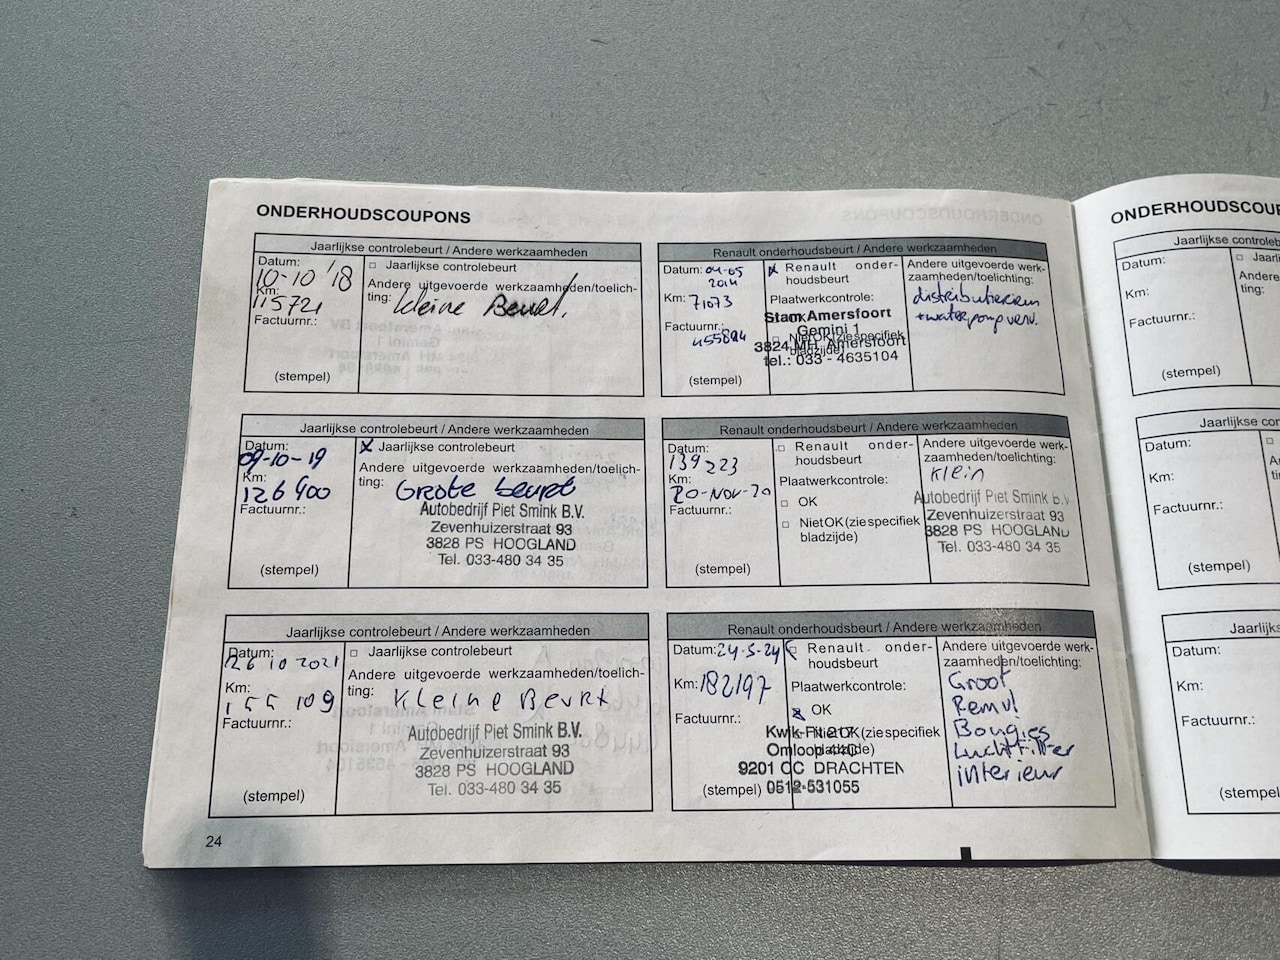 ONDERHOUDSCOUPONS
Jaarlijkse controlebeurt / Andere werkzaamheden
Datum:
10-10 '18
Km:
115721
Factuurnr.:
(stempel)
□ Jaarlijkse controlebeurt
Andere uitgevoerde werkzaamheden/toelich-
ting: kleine Beurt.
Renault onderhoudsbeurt / Andere werkzaamheden
Datum: 04-05
2014
Km: 71073
Factuurnr.:
(stempel)
Renault onder-
houdsbeurt
Plaatwerkcontrole:
OK
Niet OK (zie specifiek
bladzijde)
Stam Amersfoort
Gemini 1
3824 MH Amersfoort
tel.: 033 - 4635104
Andere uitgevoerde werk-
zaamheden/toelichting:
distributieriem
+waterpomp verv.
Jaarlijkse controlebeurt / Andere werkzaamheden
Datum:
09-10-19
Km:
126400
Factuurnr.:
(stempel)
X Jaarlijkse controlebeurt
Andere uitgevoerde werkzaamheden/toelich-
ting: Grote beurt
Autobedrijf Piet Smink B.V.
Zevenhuizerstraat 93
3828 PS HOOGLAND
Tel. 033-480 34 35
Renault onderhoudsbeurt / Andere werkzaamheden
Datum:
139223
Km:
20-Nov-20
Factuurnr.:
(stempel)
□ Renault onder-
houdsbeurt
Plaatwerkcontrole:
□ OK
□ Niet OK (zie specifiek
bladzijde)
Andere uitgevoerde werk-
zaamheden/toelichting:
Klein
Autobedrijf Piet Smink B.V.
Zevenhuizerstraat 93
3828 PS HOOGLAND
Tel. 033-480 34 35
Jaarlijkse controlebeurt / Andere werkzaamheden
Datum:
26 10 2021
Km:
155 109
Factuurnr.:
(stempel)
□ Jaarlijkse controlebeurt
Andere uitgevoerde werkzaamheden/toelich-
ting: Kleine Beurt
Autobedrijf Piet Smink B.V.
Zevenhuizerstraat 93
3828 PS HOOGLAND
Tel. 033-480 34 35
Renault onderhoudsbeurt / Andere werkzaamheden
Datum: 24-5-24
Km: 182197
Factuurnr.:
(stempel)
□ Renault onder-
houdsbeurt
Plaatwerkcontrole:
OK
Niet OK (zie specifiek
bladzijde)
Kwik-Fit 217
Omloop 44C
9201 CC DRACHTEN
0512-531055
Andere uitgevoerde werk-
zaamheden/toelichting:
Groot
Remvl
Bougies
Luchtfilter
interieur
24
ONDERHOUDSCOU
Jaarlijkse controleb
Datum:
Km:
Factuurnr.:
(stempel)
□ Jaarli
Andere
ting:
Jaarlijkse cont
Datum:
Km:
Factuurnr.:
(stempel)
Jaarlijks
Datum:
Km:
Factuurnr.:
(stempel